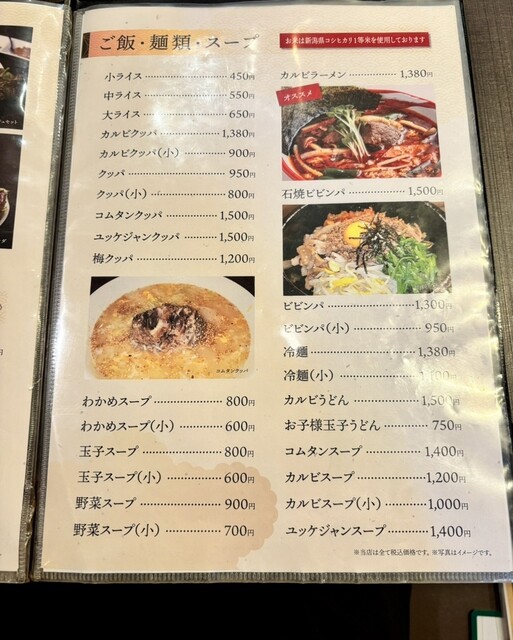 ご飯・麺類・スープ
小ライス 450円
中ライス 550円
大ライス 650円
カルビクッパ 1,380円
カルビクッパ(小) 900円
クッパ 950円
クッパ(小) 800円
コムタンクッパ 1,500円
ユッケジャンクッパ 1,500円
梅クッパ 1,200円
コムタンクッパ
わかめスープ 800円
わかめスープ(小) 600円
玉子スープ 800円
玉子スープ(小) 600円
野菜スープ 900円
野菜スープ(小) 700円
お米は新潟県コシヒカリ1等米を使用しております
カルビラーメン 1,380円
オススメ
石焼ビビンバ 1,500円
ビビンバ 1,300円
ビビンバ(小) 950円
冷麺 1,380円
冷麺(小)
カルビうどん 1,500円
お子様玉子うどん 750円
コムタンスープ 1,400円
カルビスープ 1,200円
カルビスープ(小) 1,000円
ユッケジャンスープ 1,400円
※当店は全て税込価格です。※写真はイメージです。